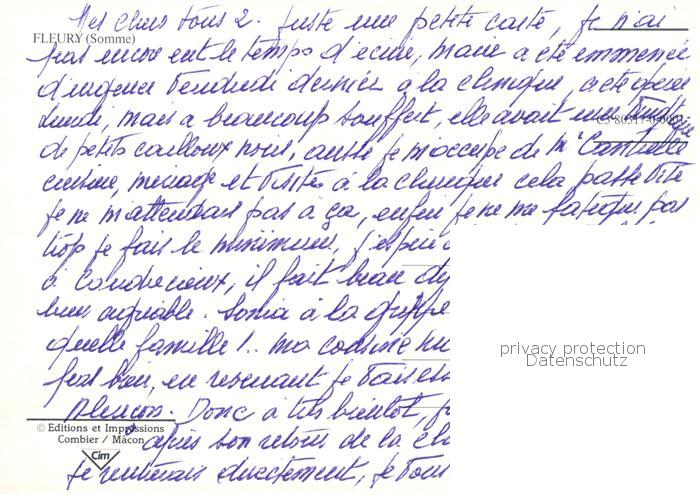 Mes chers tous 2. Juste une petite carte, je n'ai
FLEURY (Somme)
pas encore eut le temps d'écrire, marie a été emmenée
d'urgence Vendredi dernier à la clinique, a été opérée
Lundi, mais a beaucoup souffert, elle avait une
C3 80317-0-0001
de petits cailloux noirs, aussi je m'occupe de Mr
cuisine, ménage et Visites à la clinique cela passe Vite
je ne m'attendais pas à ça, enfin je ne me fatigue pas
trop je fais le minimum, j'espère
à il fait beau
bien agréable. Sonia à la grippe
quelle famille !.. ma cousine
pas bien, en revenant je
Alençon. Donc à très bientôt,
© Editions et Impressions
Combier / Mâcon
après son retour de la
Cim
je rentrerais directement, je Vous
privacy protection
Datenschutz